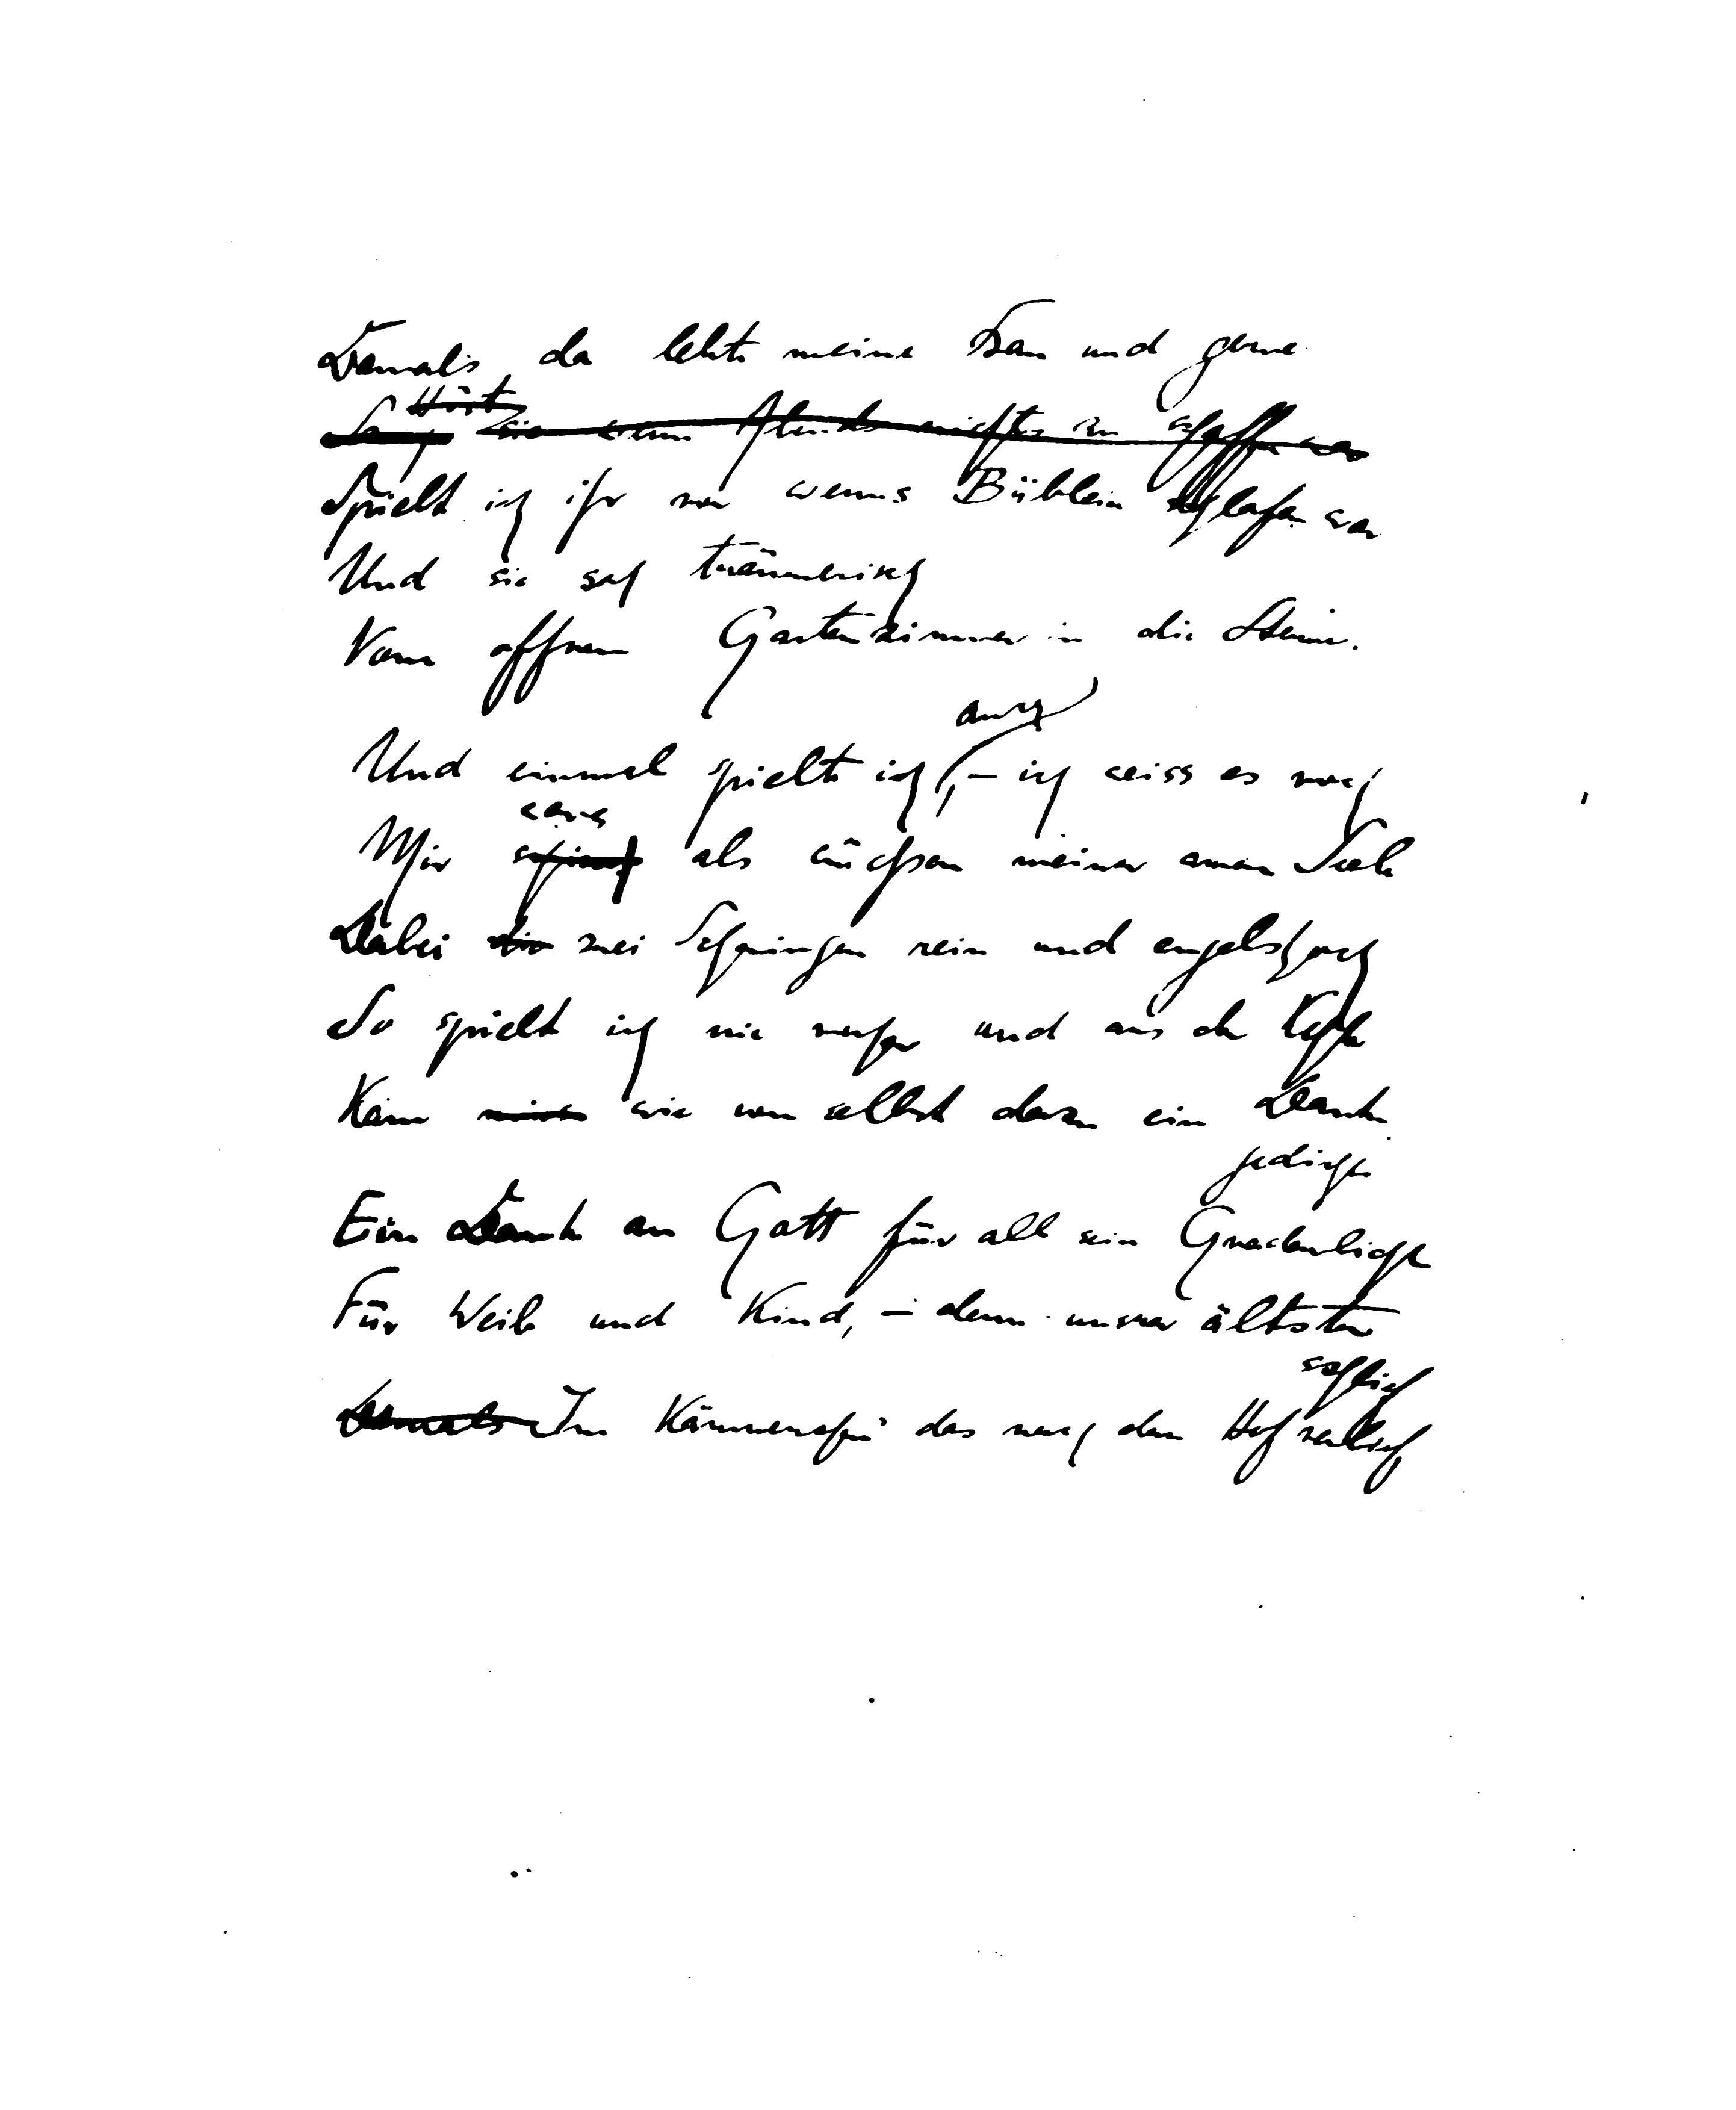 Damals, da lebte meine Frau und gerne
Hört
Sang sie wenn Abends nichts zu schaffen war
Spielt ich ihr vor wenns Büblein schlafen war
Und sie sah träumerisch
Vom offnen Gartenzimmer in die Sterne.
auch
Und einmal spielte ich, – ich weiss es noch
wars
Mir schient als wüchsen meiner armen Seele
Dabei die zwei Schwingen rein und engelshoch
So spielt ich nie mehr und aus der Kehle
Kam mir wie von selbst dazu ein Dank
gedicht
Ein Dank an Gott für all sein Gnadenlicht
Für Weib und Kind, – denn unser ältster
schlief
Damals Im Kämmerchen das nach dem Hof